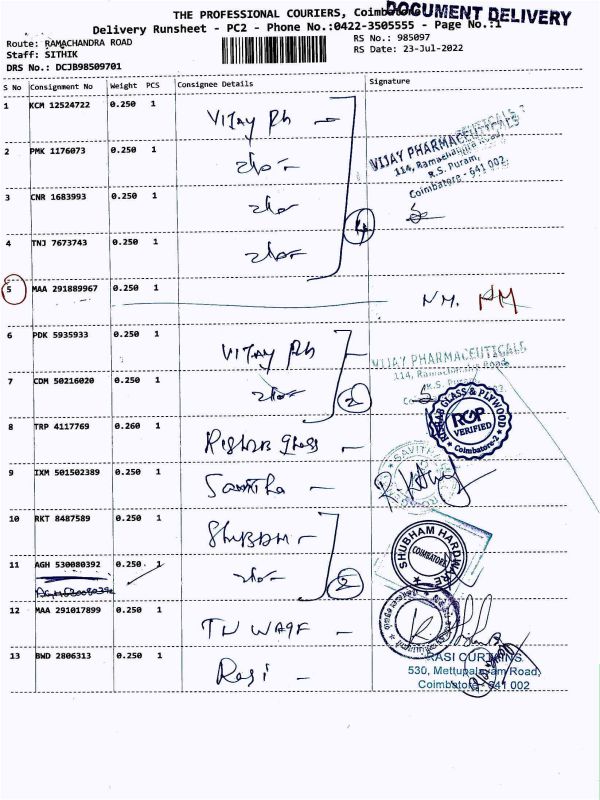 THE PROFESSIONAL COURIERS, Coimbatore
DOCUMENT DELIVERY
Delivery Runsheet - PC2 - Phone No.:0422-3505555 - Page No.:1
Route: RAMACHANDRA ROAD
RS No.: 985097
Staff: SITHIK
RS Date: 23-Jul-2022
DRS No.: DCJB98509701
S No Consignment No Weight PCS Consignee Details Signature
1 KCM 12524722 0.250 1 Vijay Ph
2 PMK 1176073 0.250 1
VIJAY PHARMACEUTICALS
114, Ramachandra Road,
R.S. Puram,
Coimbatore - 641 002
3 CNR 1683993 0.250 1
4 TNJ 7673743 0.250 1
4
5 MAA 291889967 0.250 1 NM. NM
6 PDK 5935933 0.250 1 Vijay Ph
VIJAY PHARMACEUTICALS
114, Ramachandra Road
R.S. Puram
7 CDM 50216020 0.250 1
2
RISHAB GLASS & PLYWOOD
RGP
VERIFIED
Coimbatore-2
8 TRP 4117769 0.260 1 Rishab Glass
9 IXM 501502389 0.250 1
10 RKT 8487589 0.250 1 Shubam
SHUBHAM HARDWARE
COIMBATORE
11 AGH 530080392 0.250 1
2
12 MAA 291017899 0.250 1 TN WAQF
13 BWD 2806313 0.250 1 Rasi
RASI CURTAINS
530, Mettupalayam Road,
Coimbatore - 641 002